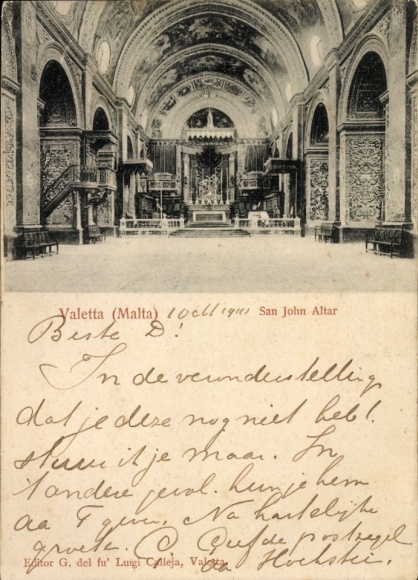 Valetta (Malta) 10 1911 San John Altar
Beste D!
In de veronderstelling
dat je deze nog niet hebt.
stuur ik je maar. In
't andere geval. kun je hem
aan T geven. Na hartelijke
groeten. de postzegel
Editor G. del fu' Luigi Calleja, Valetta.